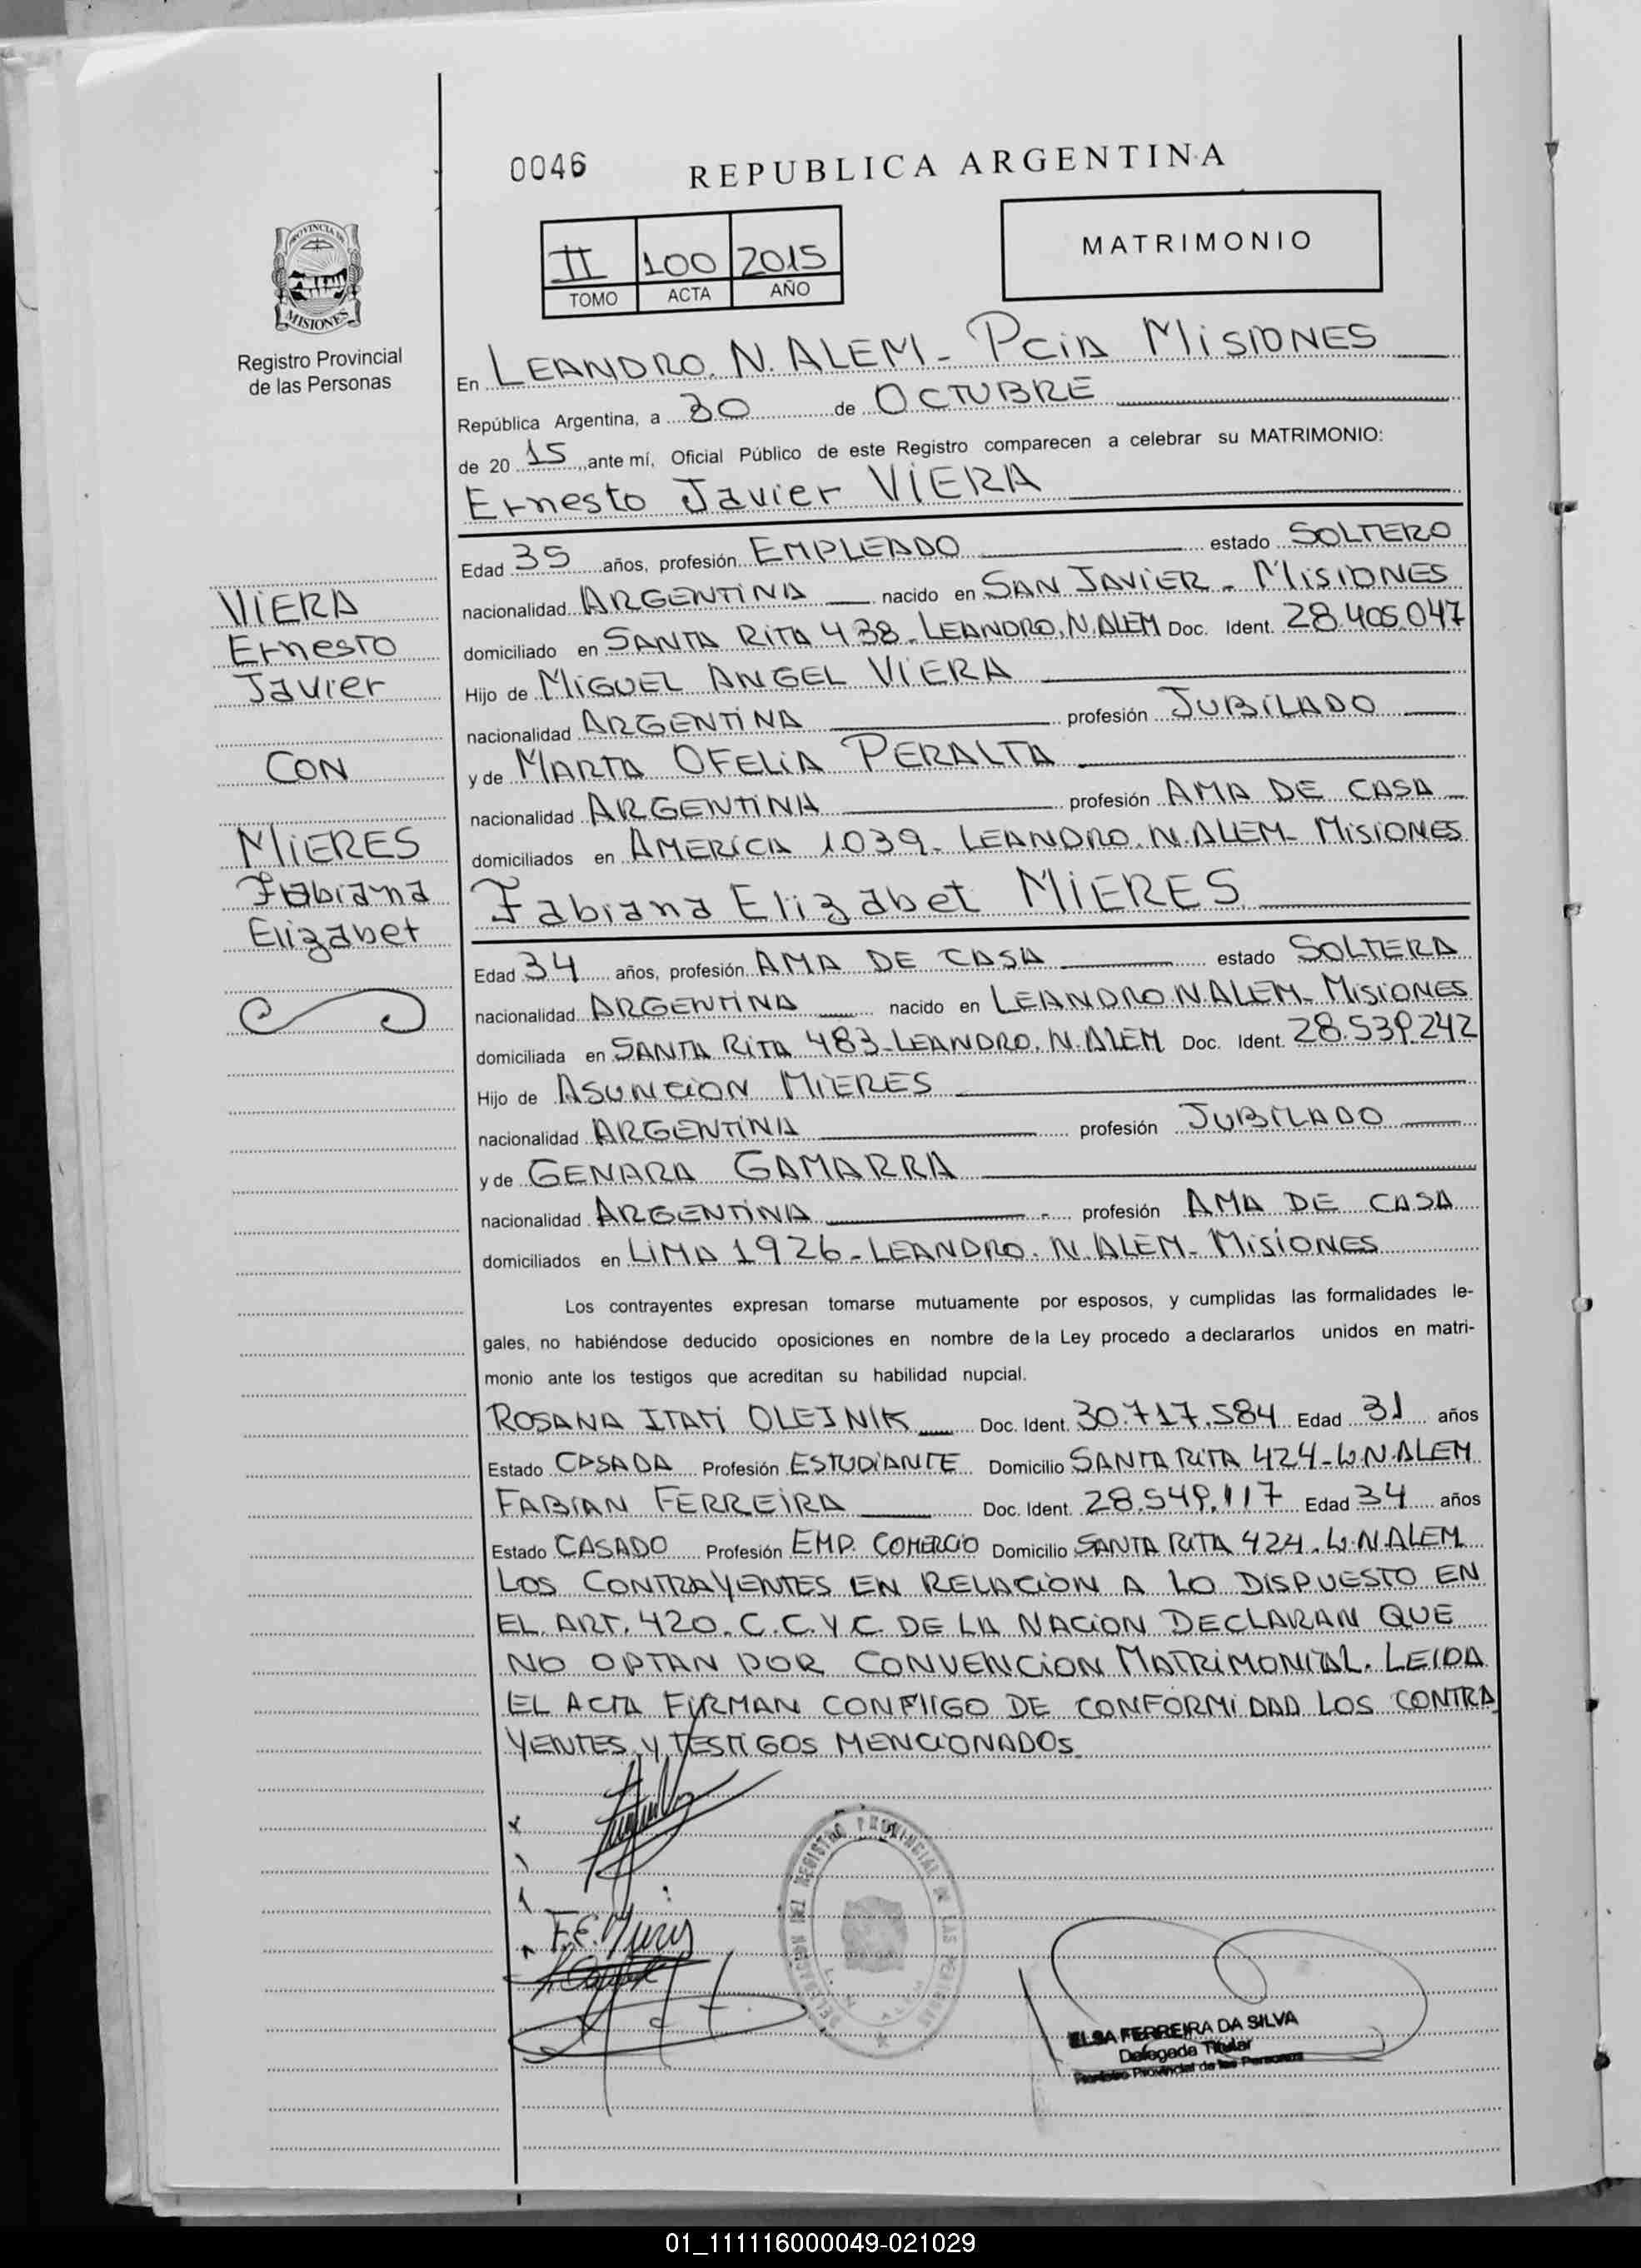 0046
REPUBLICA ARGENTINA
II 100 2015
TOMO ACTA AÑO
MATRIMONIO
PROVINCIA DE
MISIONES
Registro Provincial
de las Personas
En LEANDRO. N. ALEM - Pcia MISIONES
República Argentina, a 30 de OCTUBRE
de 20 15, ante mí, Oficial Público de este Registro comparecen a celebrar su MATRIMONIO:
Ernesto Javier VIERA
Edad 35 años, profesión EMPLEADO estado SOLTERO
nacionalidad ARGENTINA nacido en SAN JAVIER - MISIONES
domiciliado en SANTA RITA 438 - LEANDRO. N. ALEM Doc. Ident. 28.405.047
Hijo de MIGUEL ANGEL VIERA
nacionalidad ARGENTINA profesión JUBILADO
y de MARTA OFELIA PERALTA
nacionalidad ARGENTINA profesión AMA DE CASA
domiciliados en AMERICA 1039 - LEANDRO. N. ALEM - MISIONES
VIERA
Ernesto
Javier
CON
MIERES
Fabiana
Elizabet
Fabiana Elizabet MIERES
Edad 34 años, profesión AMA DE CASA estado SOLTERA
nacionalidad ARGENTINA nacido en LEANDRO N. ALEM - MISIONES
domiciliada en SANTA RITA 483 - LEANDRO. N. ALEM Doc. Ident. 28.539.242
Hijo de ASUNCION MIERES
nacionalidad ARGENTINA profesión JUBILADO
y de GENARA GAMARRA
nacionalidad ARGENTINA profesión AMA DE CASA
domiciliados en LIMA 1926 - LEANDRO. N. ALEM - MISIONES
Los contrayentes expresan tomarse mutuamente por esposos, y cumplidas las formalidades le-
gales, no habiéndose deducido oposiciones en nombre de la Ley procedo a declararlos unidos en matri-
monio ante los testigos que acreditan su habilidad nupcial.
ROSANA ITATI OLEJNIK Doc. Ident. 30.717.584 Edad 31 años
Estado CASADA Profesión ESTUDIANTE Domicilio SANTA RITA 424 - L. N. ALEM
FABIAN FERREIRA Doc. Ident. 28.549.117 Edad 34 años
Estado CASADO Profesión EMP. COMERCIO Domicilio SANTA RITA 424. L. N. ALEM
LOS CONTRAYENTES EN RELACION A LO DISPUESTO EN
EL ART. 420. C. C. Y C. DE LA NACION DECLARAN QUE
NO OPTAN POR CONVENCION MATRIMONIAL. LEIDA
EL ACTA FIRMAN CONMIGO DE CONFORMIDAD LOS CONTRA
YENTES Y TESTIGOS MENCIONADOS
DELEGACION DEL REGISTRO PROVINCIAL DE LAS PERSONAS
ELSA FERREIRA DA SILVA
Delegada Titular
Registro Provincial de las Personas
01_111116000049-021029